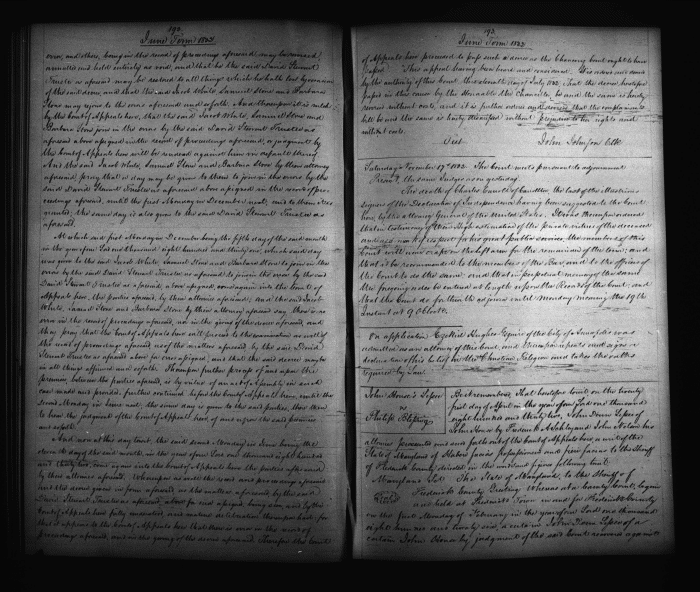 192.
June Term 1832
error, and others, being in the record of proceedings aforesaid may be reversed
annulled and held entirely as void, and that he the said David Stewart
Trustee as aforesaid may be restored to all things which he hath lost by occasion
of the said error, and that the said Jacob Waltz, Samuel Stone and Barbara
Stone may rejoin to the errors aforesaid and so forth. And thereupon it is ruled
by the Court of Appeals here, that the said Jacob Waltz, Samuel Stone and
Barbara Stone join in the errors by the said David Stewart Trustee as
aforesaid above assigned in the record of proceedings aforesaid, or judgment by
the Court of Appeals here will be rendered against him
And the said Jacob Waltz, Samuel Stone and Barbara Stone by their attorney
aforesaid, pray that a day may be given to them to join in the errors by the
said David Stewart Trustee as aforesaid above assigned in the record of pro-
ceedings aforesaid, until the first Monday in December next, and to them it is
granted; the same day is also given to the said David Stewart Trustee as
aforesaid.
At which said first Monday in December being the fifth day of the said month
in the year of our Lord one thousand eight hundred and thirty one, which said day
was given to the said Jacob Waltz, Samuel Stone and Barbara Stone to join in the
errors by the said David Stewart Trustee as aforesaid
David Stewart Trustee as aforesaid, above assigned, come again into the Court of
Appeals here, the parties aforesaid, by their attornies aforesaid; And the said Jacob
Waltz, Samuel Stone and Barbara Stone by their attorney aforesaid say there is no
error in the record of proceedings aforesaid, nor in the giving of the decree aforesaid, and
they pray that the Court of Appeals here will proceed to the examination as well of
the record of proceedings aforesaid as of the matters aforesaid by the said David
Stewart Trustee as aforesaid above for error assigned, and that the said decree may be
in all things affirmed and so forth. Thereupon further process of and upon the
premises between the parties aforesaid, is by virtue of an act of Assembly in such
case made and provided, further continued before the Court of Appeals here, until the
second Monday in June next; the same day is given to the said parties, then there
to hear the judgment of the Court of Appeals here, of and upon the said premises
and so forth.
And now at this day, to wit, the said second Monday in June being the
day of the said month, in the year of our Lord one thousand eight hundred
and thirty two, come again into the Court of Appeals here the parties aforesaid
by their attornies aforesaid. Whereupon as well the record and proceedings aforesaid
and the decree given in form aforesaid as the matters aforesaid by the said
David Stewart Trustee as aforesaid above for error assigned being seen, and by the
Court of Appeals here fully understood, and mature deliberation thereupon had; for
that it appears to the Court of Appeals here that there is error in the record of
proceedings aforesaid, and in the giving of the decree aforesaid; Therefore the Court
193.
June Term 1832
of Appeals here proceed to pass such a decree as the Chancery Court ought to have
passed. This appeal having been heard and considered. It is decreed and
by the authority of this Court, this eleventh day of July 1832 That the decree heretofore
passed in this cause by the Honorable the Chancellor be and the same is hereby
reversed without costs, and it is further ordered and decreed that the complainants
bill be and the same is hereby dismissed without prejudice to his rights and
without costs.
Test John Johnson Clk
Saturday November 17th 1832. The Court meets pursuant to adjournment
Present the same Judges as on yesterday.
The death of Charles Carroll of Carrollton, the last of the illustrious
signers of the Declaration of Independence having been suggested to the Court
here, by the attorney General of the United States. It is thereupon ordered
that in testimony of their high estimation of the private virtues of the deceased
and as a mark of respect for his great public services, the members of this
Court will wear crape on the left arm for the remainder of the term; and
that it be recommended to the members of the Bar, and to the officers of
the Court to do the same. and that in perpetual memory of the same
the foregoing order be entered at length upon the Records of this Court. and
that the Court do further be adjourned until Monday morning the 19th
instant at 9 O'Clock.
On application Ezekiel Hughes Esquire of the City of Annapolis was
admitted as an attorney of this Court, and thereupon repeats and signs a
declaration of his belief in the Christian Religion and takes the oaths
required by Law.
John House's Lessee
vs
Philip
Be it remembered, That heretofore to wit on the twenty
first day of April in the year of our Lord one thousand
eight hundred and thirty two, John Doen Lessee of
John House by Frederick A Schley and John Nelson his
attornies prosecuted and sued forth out of the Court of Appeals here a writ of the
State of Maryland of Habere facias possessionem and fieri facias to the Sheriff
of Frederick County directed in the words and figures following to wit
Maryland Sct. The State of Maryland to the Sheriff of
Frederick County Greeting Whereas at a County Court, begun
and held at Frederick Town in and for Frederick County
on the first Monday of February in the year of our Lord one thousand
eight hundred and twenty six a certain John Doen Lessee of a
certain John House by judgment of the said Court recovered against a